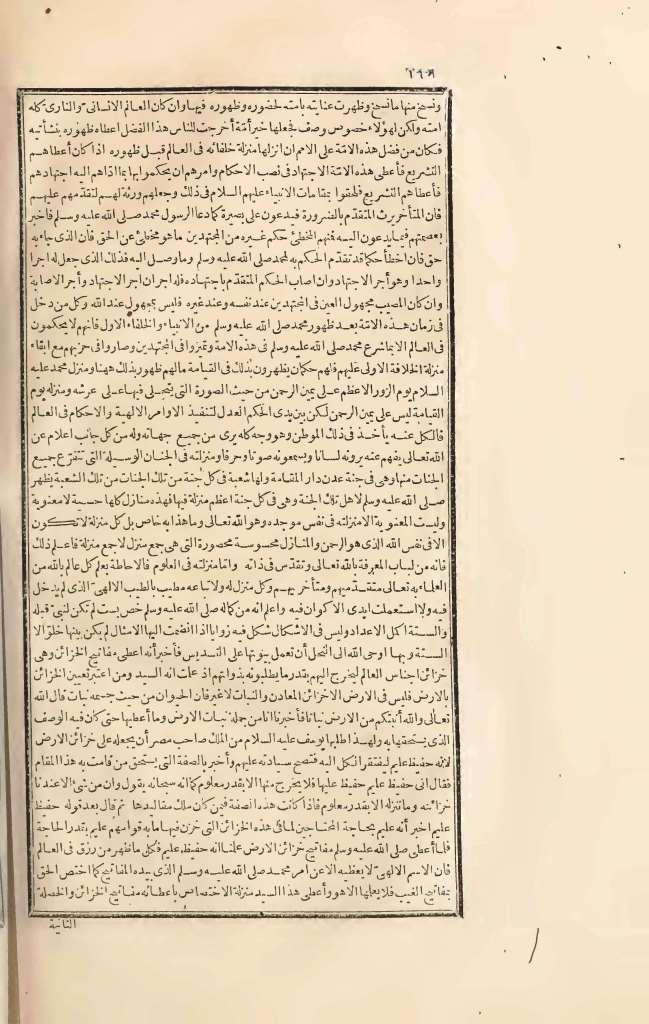 ونسخ منها ما نسخ وظهرت عنايته بأمته لحضوره وظهوره فيها وان كان العالم الانسانى والنارى كله
امته ولكن لهؤلاء خصوص وصف فجعلها خير أمة أخرجت للناس هذا الفضل اعطاه ظهوره بنشأتيه
فكان من فضل هذه الامة على الامم ان انزلها منزلة خلفائه فى العالم قبل ظهوره اذا كان أعطاهم
التشريع فأعطى هذه الامة الاجتهاد فى نصب الاحكام وامرهم ان يحكموا بما اداهم اليه اجتهادهم
فأعطاهم التشريع فلحقوا بمقامات الانبياء عليهم السلام فى ذلك وجعلهم ورثة لهم لتقدمهم عليهم
فان المتأخر يرث المتقدم بالضرورة فيدعون على بصيرة كما دعا الرسول محمد صلى الله عليه وسلم فأخبر
بعصمتهم فيما يدعون اليه فمنهم المخطئ حكم غيره من المجتهدين ما هو مخطئ عن الحق فان الذى جاء به
حق فان اخطأ حكما قد تقدم الحكم به لمحمد صلى الله عليه وسلم وما وصل اليه فذلك الذى جعل له اجرا
واحدا وهو أجر الاجتهاد وان اصاب الحكم المتقدم باجتهاده فله اجران اجر الاجتهاد وأجر الاصابة
وان كان المصيب مجهول العين فى المجتهدين عند نفسه وعند غيره فليس بمجهول عند الله وكل من دخل
فى زمان هذه الامة بعد ظهور محمد صلى الله عليه وسلم من الانبياء والخلفاء الاول فانهم لا يحكمون
فى العالم الا بما شرع محمد صلى الله عليه وسلم فى هذه الامة وتميزوا فى المجتهدين وصاروا فى حزبهم مع ابقاء
منزلة الخلافة الاولى عليهم فلهم حكمان يظهرون بذلك فى القيامة ما لهم ظهور بذلك ههنا ومنزل محمد عليه
السلام يوم الزور الاعظم على يمين الرحمن من حيث الصورة التى يتجلى فيها على عرشه ومنزله يوم
القيامة ليس على يمين الرحمن لكن بين يدى الحكم العدل لتنفيذ الاوامر الالهية والاحكام فى العالم
فالكل عنه يأخذ فى ذلك الموطن وهو وجه كله يرى من جميع جهاته وله من كل جانب اعلام عن
الله تعالى يفهم عنه يرونه لسانا ويسمعونه صوتا وحرفا ومنزلته فى الجنان الوسيلة التى تتفرع جميع
الجنات منها وهى فى جنة عدن دار المقامة ولها شعبة فى كل جنة من تلك الجنات من تلك الشعبة يظهر
صلى الله عليه وسلم لاهل تلك الجنة وهى فى كل جنة اعظم منزلة فيها فهذه منازل كلها حسية لا معنوية
وليست المعنوية الا منزلته فى نفس موجده وهو الله تعالى وما هذا به خاص بل كل منزلة لا تكون
الا فى نفس الله الذى هو الرحمن والمنازل محسوسة محصورة التى هى جمع منزل لا جمع منزلة فاعلم ذلك
فانه من لباب المعرفة بالله تعالى وتقدس فى ذاته وأما منزلته فى العلوم فالاحاطة بعلم كل عالم بالله من
العلماء به تعالى متقدميهم ومتأخريهم وكل منزل له ولاتباعه مطيب بالطيب الالهى الذى لم يدخل
فيه ولا استعملت ايدى الاكوان فيه واعلم انه من كماله صلى الله عليه وسلم خص بست لم تكن لنبى قبله
والستة اكمل الاعداد وليس فى الاشكال شكل فيه زوايا اذا انضمت اليها الامثال لم يكن بينها خلو الا
الستة وبها اوحى الله الى النحل أن تعمل بيوتها على التسديس فأخبر أنه اعطى مفاتيح الخزائن وهى
خزائن اجناس العالم ليخرج اليهم بقدر ما يطلبونه بذواتهم اذ علمنا انه السيد ومن اعتبر تعيين الخزائن
بالارض فليس فى الارض الا خزائن المعادن والنبات لا غير فان الحيوان من حيث جسمه نبات قال الله
تعالى والله أنبتكم من الارض نباتا فأخبرنا انا من جملة نبات الارض وما أعطيها حتى كان فيه الوصف
الذى يستحقها به ولهذا طلبها يوسف عليه السلام من الملك صاحب مصر أن يجعله على خزائن الارض
لانه حفيظ عليم ليفتقر الكل اليه فتصح سيادته عليهم وأخبر بالصفة التى يستحق من قامت به هذا المقام
فقال انى حفيظ عليم حفيظ عليها فلا يخرج منها الا بقدر معلوم كما انه سبحانه يقول وان من شئ الا عندنا
خزائنه وما ننزله الا بقدر معلوم فاذا كانت هذه الصفة فيمن كان ملك مقاليدها ثم قال بعد قوله حفيظ
عليم اخبر أنه عليم بحاجة المحتاجين لما فى هذه الخزائن التى خزن فيها ما به قوامهم عليم بقدر الحاجة
فلما أعطى صلى الله عليه وسلم مفاتيح خزائن الارض علمنا انه حفيظ عليم فكل ما ظهر من رزق فى العالم
فان الاسم الالهى لا يعطيه الا عن امر محمد صلى الله عليه وسلم الذى بيده المفاتيح كما اختص الحق
بمفاتيح الغيب فلا يعلمها الا هو وأعطى هذا السيد منزلة الاختصاص باعطائه مفاتيح الخزائن والخصلة
الثانية